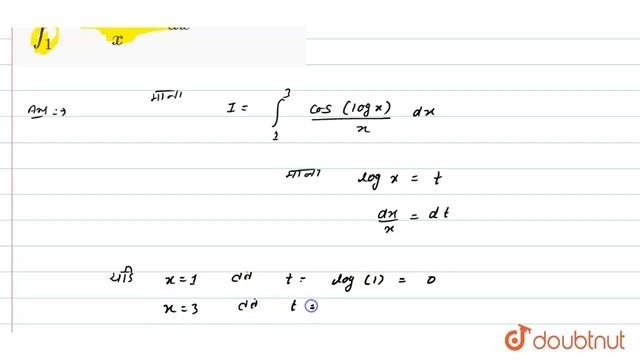 ∫₁ x
Ans ⇒ माना I = ∫₁³ cos (log x) / x dx
माना log x = t
dx/x = dt
यदि x = 1 तब t = log (1) = 0
x = 3 तब t =
doubtnut